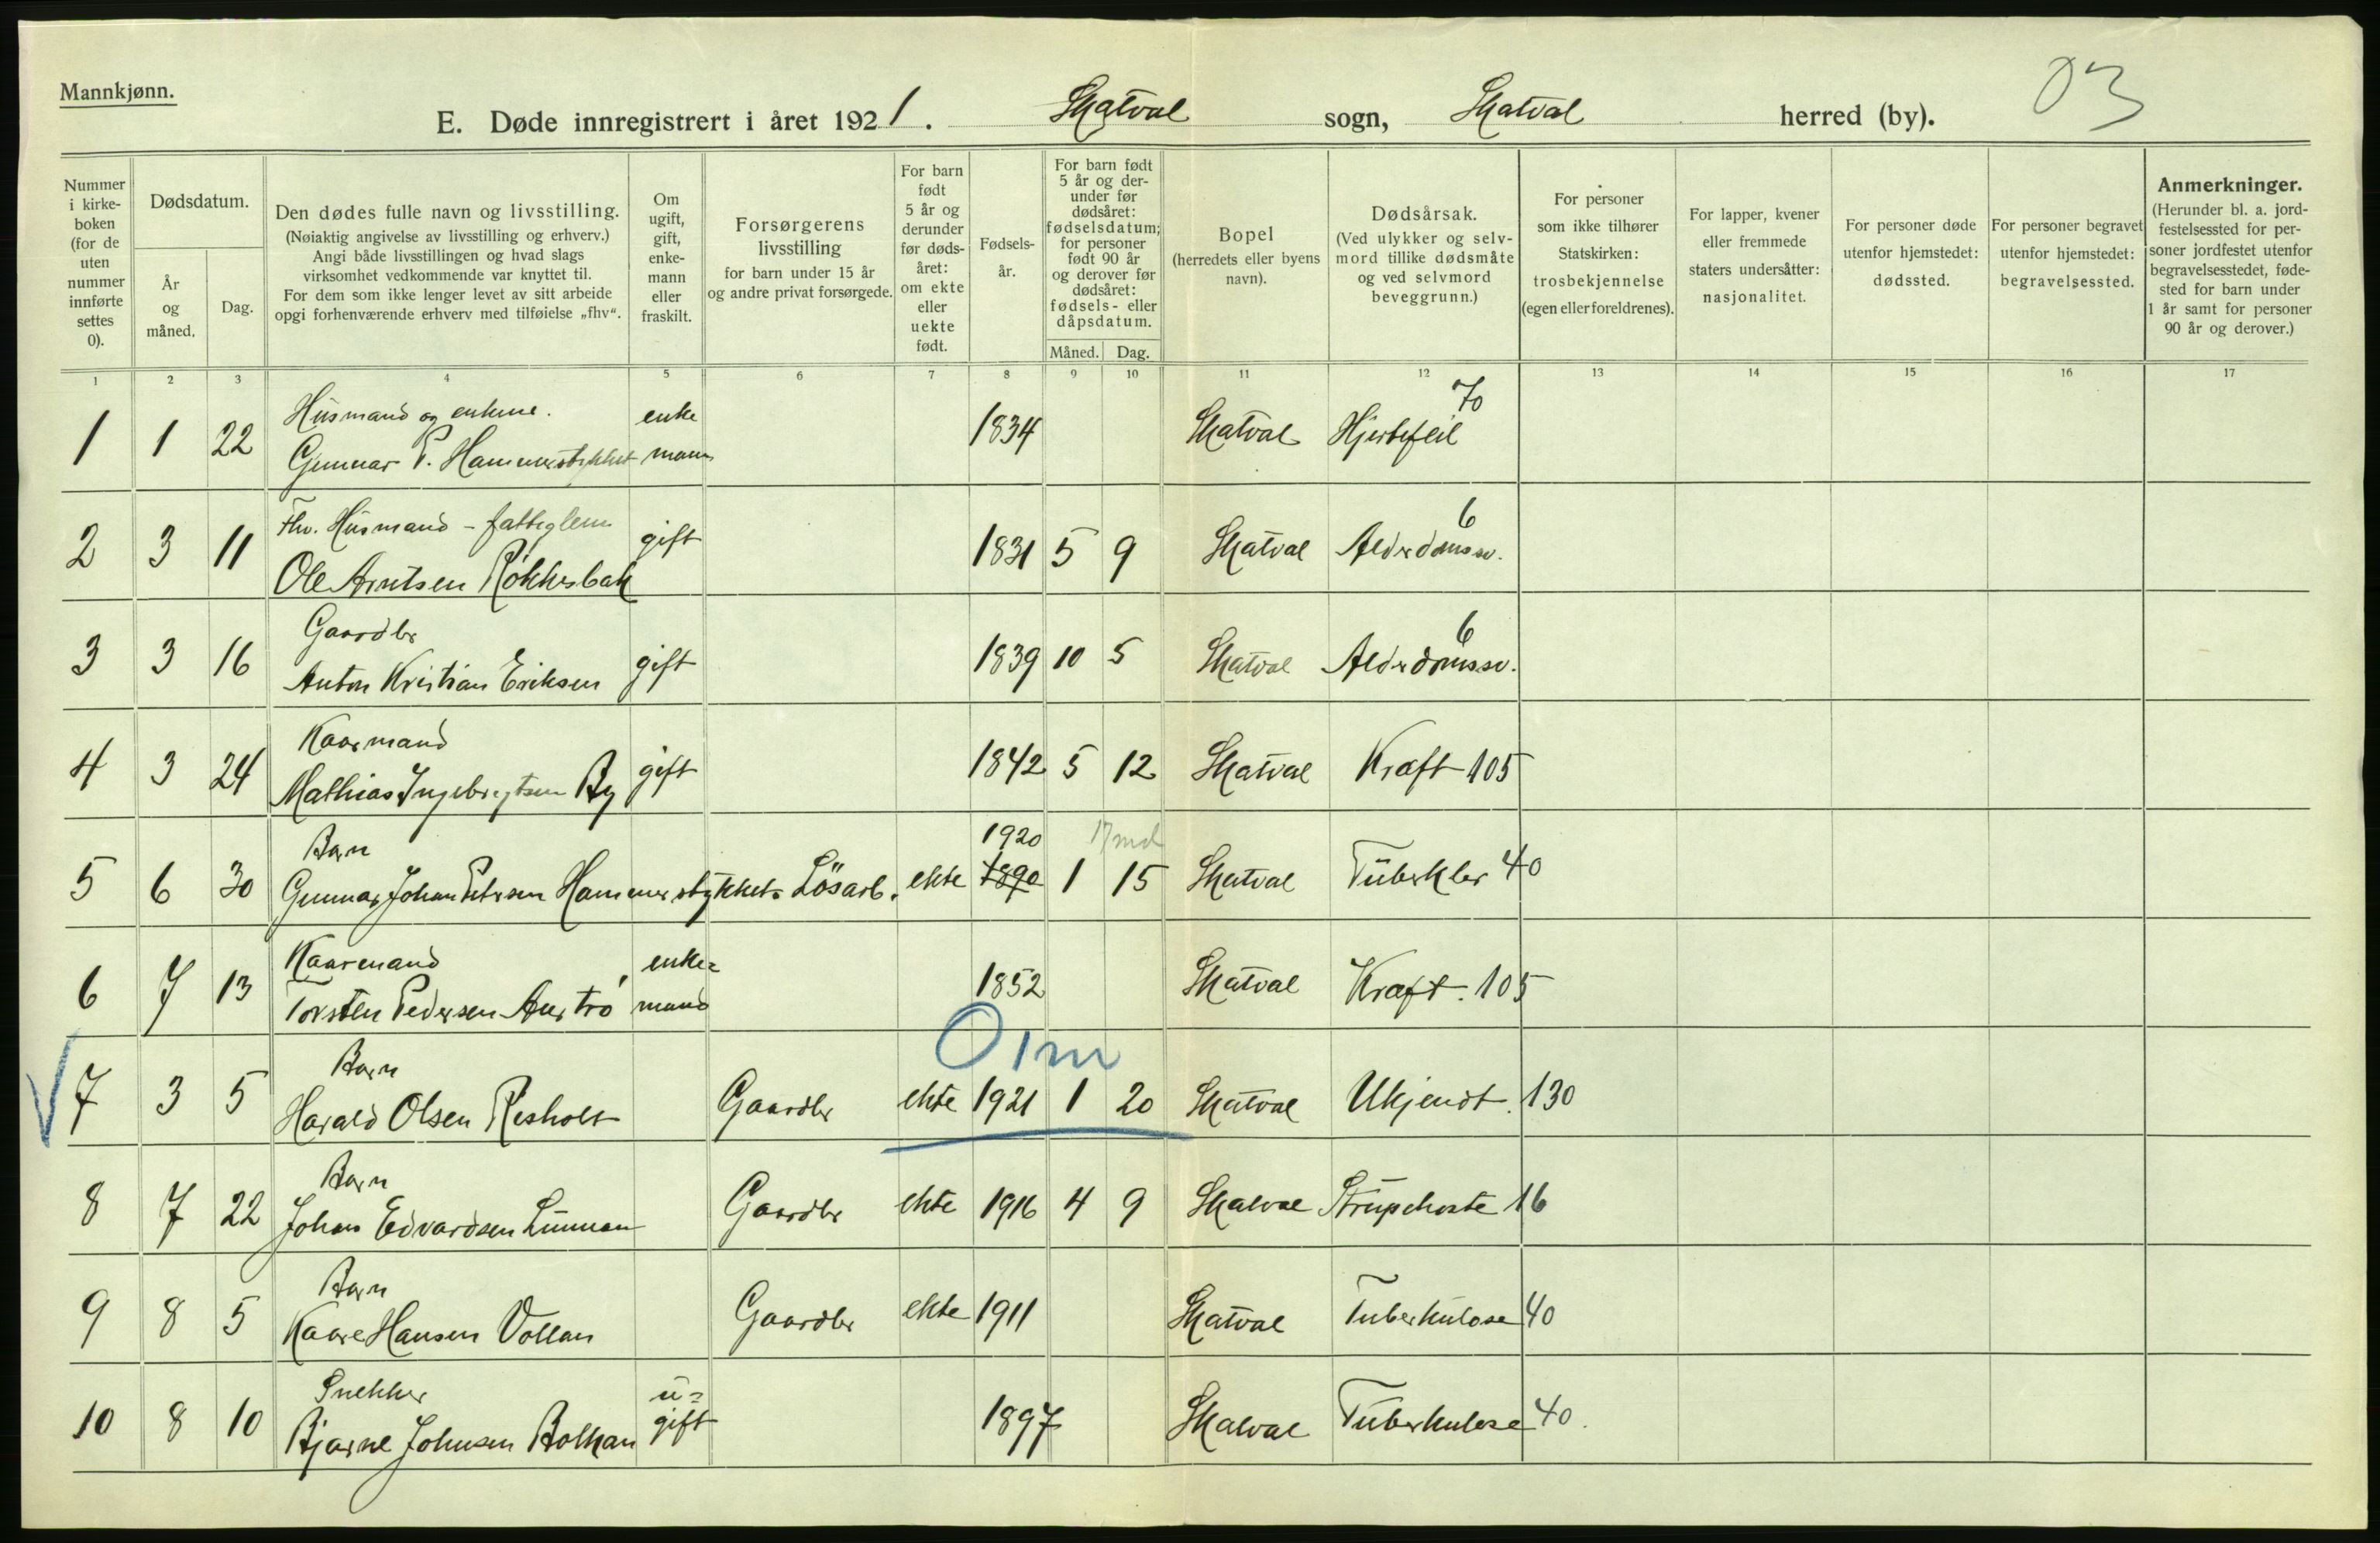 Mannkjønn.
E. Døde innregistrert i året 1921. Skatval sogn, Skatval herred (by). 03
Nummer i kirke-boken (for de uten nummer innførte settes 0).
Dødsdatum.
År og måned.
Dag.
Den dødes fulle navn og livsstilling.
(Nøiaktig angivelse av livsstilling og erhverv.)
Angi både livsstillingen og hvad slags
virksomhet vedkommende var knyttet til.
For dem som ikke lenger levet av sitt arbeide
opgi forhenværende erhverv med tilføielse „fhv“.
Om ugift, gift, enke-mann eller fraskilt.
Forsørgerens livsstilling
for barn under 15 år
og andre privat forsørgede.
For barn født 5 år og derunder før døds-året: om ekte eller uekte født.
Fødsels-år.
For barn født 5 år og der-under før dødsåret: fødselsdatum; for personer født 90 år og derover før dødsåret: fødsels- eller dåpsdatum.
Måned. Dag.
Bopel
(herredets eller byens navn).
Dødsårsak.
(Ved ulykker og selv-mord tillike dødsmåte og ved selvmord beveggrunn.)
For personer som ikke tilhører Statskirken: trosbekjennelse (egen eller foreldrenes).
For lapper, kvener eller fremmede staters undersåtter: nasjonalitet.
For personer døde utenfor hjemstedet: dødssted.
For personer begravet utenfor hjemstedet: begravelsessted.
Anmerkninger.
(Herunder bl. a. jord-festelsessted for per-soner jordfestet utenfor begravelsesstedet, føde-sted for barn under 1 år samt for personer 90 år og derover.)
1 2 3 4 5 6 7 8 9 10 11 12 13 14 15 16 17
Husmand og enkem. enke 70
1 1 22 Gunnar P. Hammerstykket mann 1834 Skatval Hjertefeil
Fhv. Husmand - fattiglem 6
2 3 11 Ole Arntsen Røkkesbak gift 1831 5 9 Skatval Alderdomssv.
Gaardbr 6
3 3 16 Anton Kristian Eriksen gift 1839 10 5 Skatval Alderdomssv.
Kaarmand
4 3 24 Mathias Ingebrigtsen By gift 1842 5 12 Skatval Kræft 105
Barn 1920 17 md
5 6 30 Gunnar Johan Petersen Hammerstykket Løsarb. ekte 1890 1 15 Skatval Tuberkler 40
Kaarmand enke=
6 7 13 Torsten Pedersen Austrø mand 1852 Skatval Kræft. 105
Barn 0 1 m
7 3 5 Harald Olsen Risholt Gaardbr ekte 1921 1 20 Skatval Ukjendt. 130
Barn
8 7 22 Johan Edvardsen Gaardbr ekte 1916 4 9 Skatval Strupehoste 16
Barn
9 8 5 Kaare Hansen Vollan Gaardbr ekte 1911 Skatval Tuberkulose 40
Snekker u=
10 8 10 Bjarne Johnsen gift 1897 Skatval Tuberkulose 40.